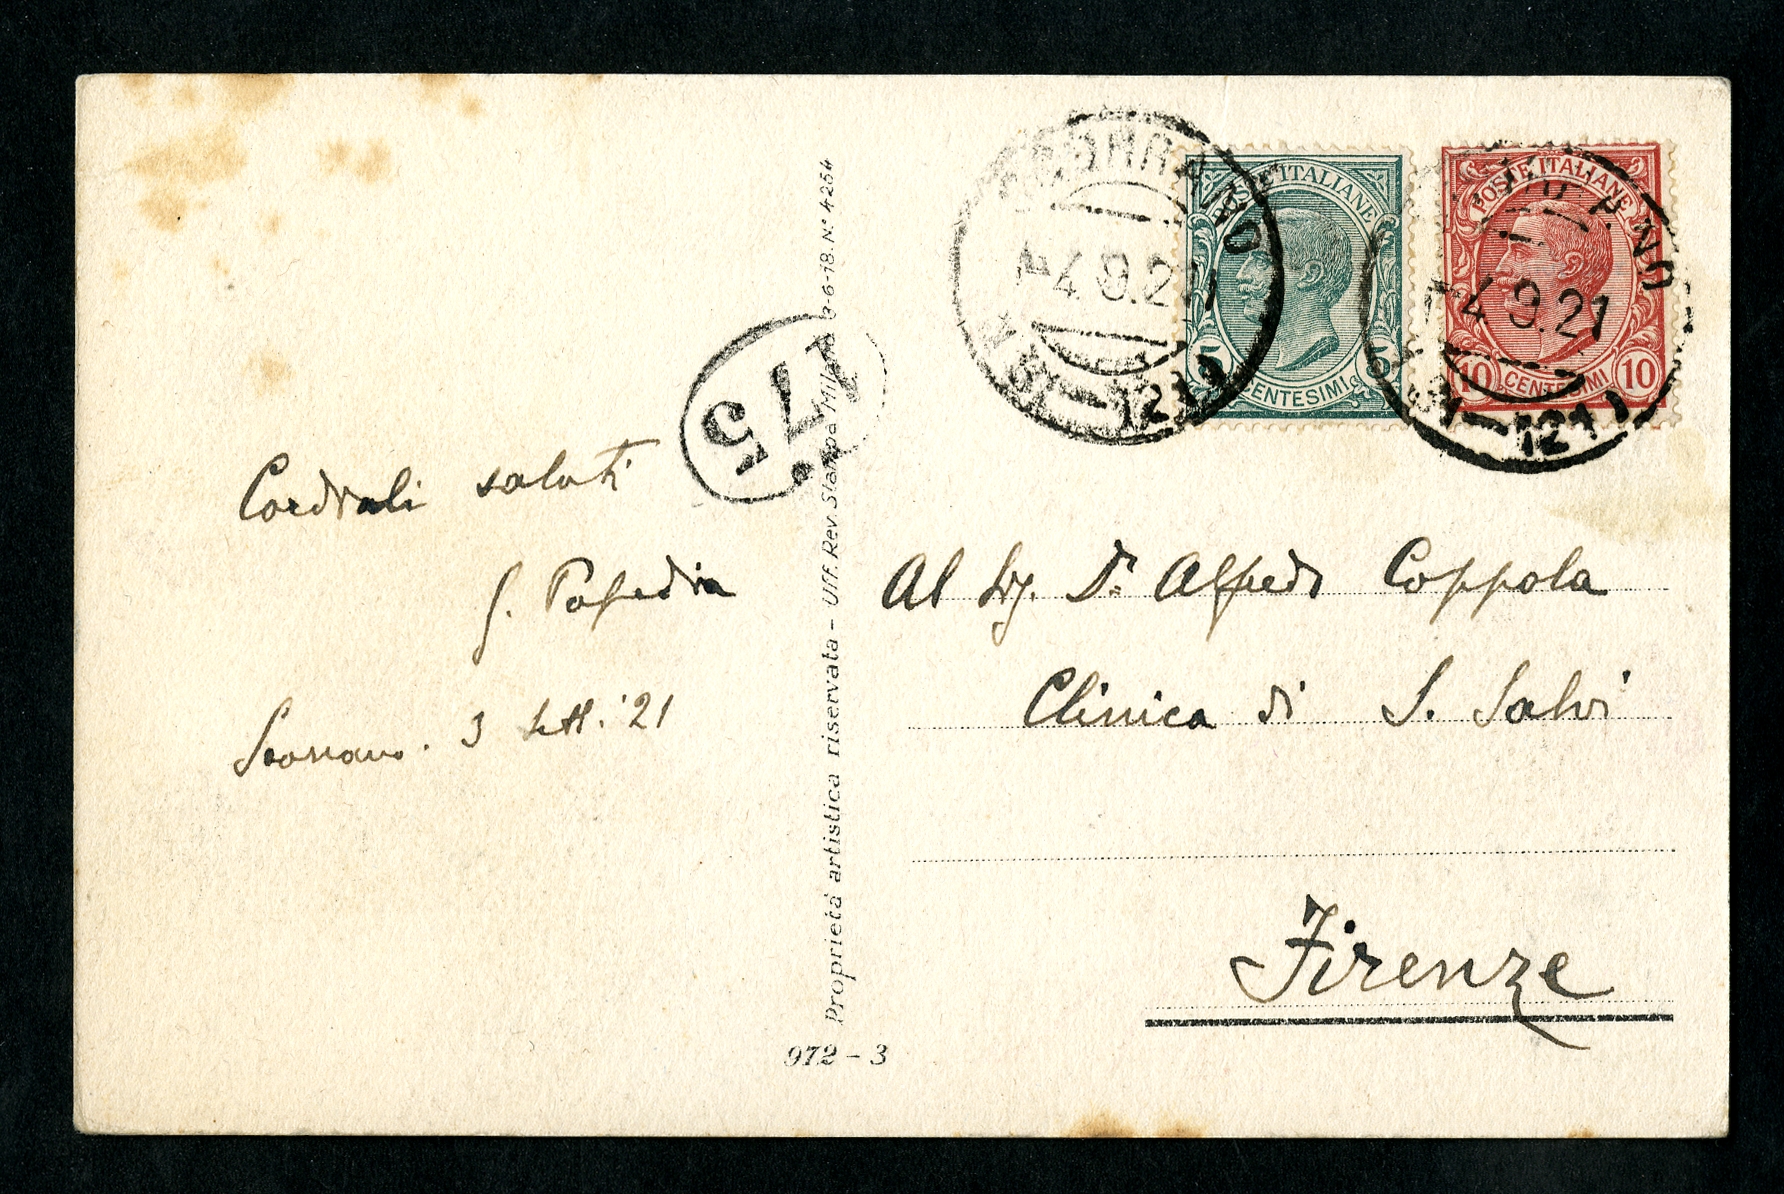 Cordiali saluti
Scorrano. 3 Sett. '21
175
Proprietà artistica riservata - Uff. Rev. Stampa Milano 3-6-18. N° 4254
972 - 3
SCORRANO
4.9.21
POSTE ITALIANE
5 CENTESIMI 5
SCORRANO
4.9.21
POSTE ITALIANE
10 CENTESIMI 10
Al Sig. Dr. Alfredo Coppola
Clinica di S. Salvi
Firenze